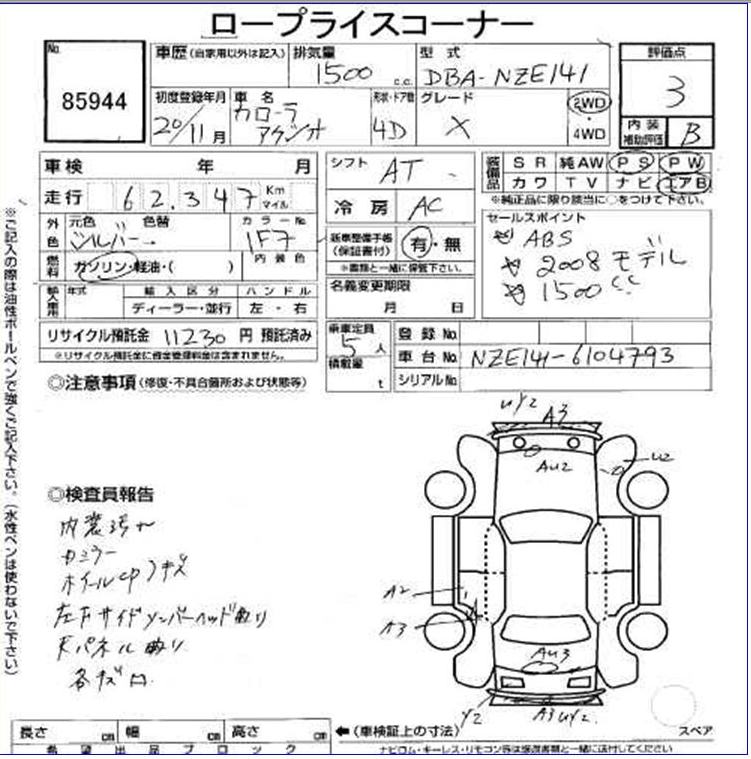 ロープライスコーナー
No.
85944
車歴(自家用以外は記入)
排気量
1500 c.c.
型式
DBA-NZE141
評価点
3
初度登録年月
20/11月
車名
カローラ
アクシオ
形状・ドア数
4D
グレード
X
2WD
・
4WD
内装
補助評価
B
車検 年 月
シフト
AT
装備品
SR 純AW PS PW
カワ TV ナビ エアB
※純正品に限り該当に○をつけて下さい。
走行 62.347 Km マイル
冷房 AC
セールスポイント
☆ ABS
☆ 2008モデル
☆ 1500cc
外色
元色 色替
シルバー
カラーNo
1F7
新車整備手帳
(保証書付)
有・無
※書類と一緒に保管下さい。
燃料
ガソリン・軽油・( )
内装色
名義変更期限
月 日
輸入車用
年式
輸入区分
ディーラー・並行
ハンドル
左・右
リサイクル預託金 11230 円 預託済み
※リサイクル預託金に資金管理料金は含まれません。
乗車定員
5人
積載量
t
登録No.
車台No. NZE141-6104793
シリアルNo.
◎注意事項(修復・不具合箇所および状態等)
※ご記入の際は油性ボールペンで強くご記入下さい。(水性ペンは使わないで下さい)
UY2
A3
AU2
U2
◎検査員報告
内装汚れ
カミラー
ホイールcpキズ
左下サイドメンバーヘッド曲り
Kパネル曲り
各キズ凹
A2
A3
AU3
Y2
A3 UY2
スペア
長さ cm 幅 cm 高さ cm
←(車検証上の寸法)
希望出品ブロック
ナビロム・キーレス・リモコン等は譲渡書類と一緒に送付してください